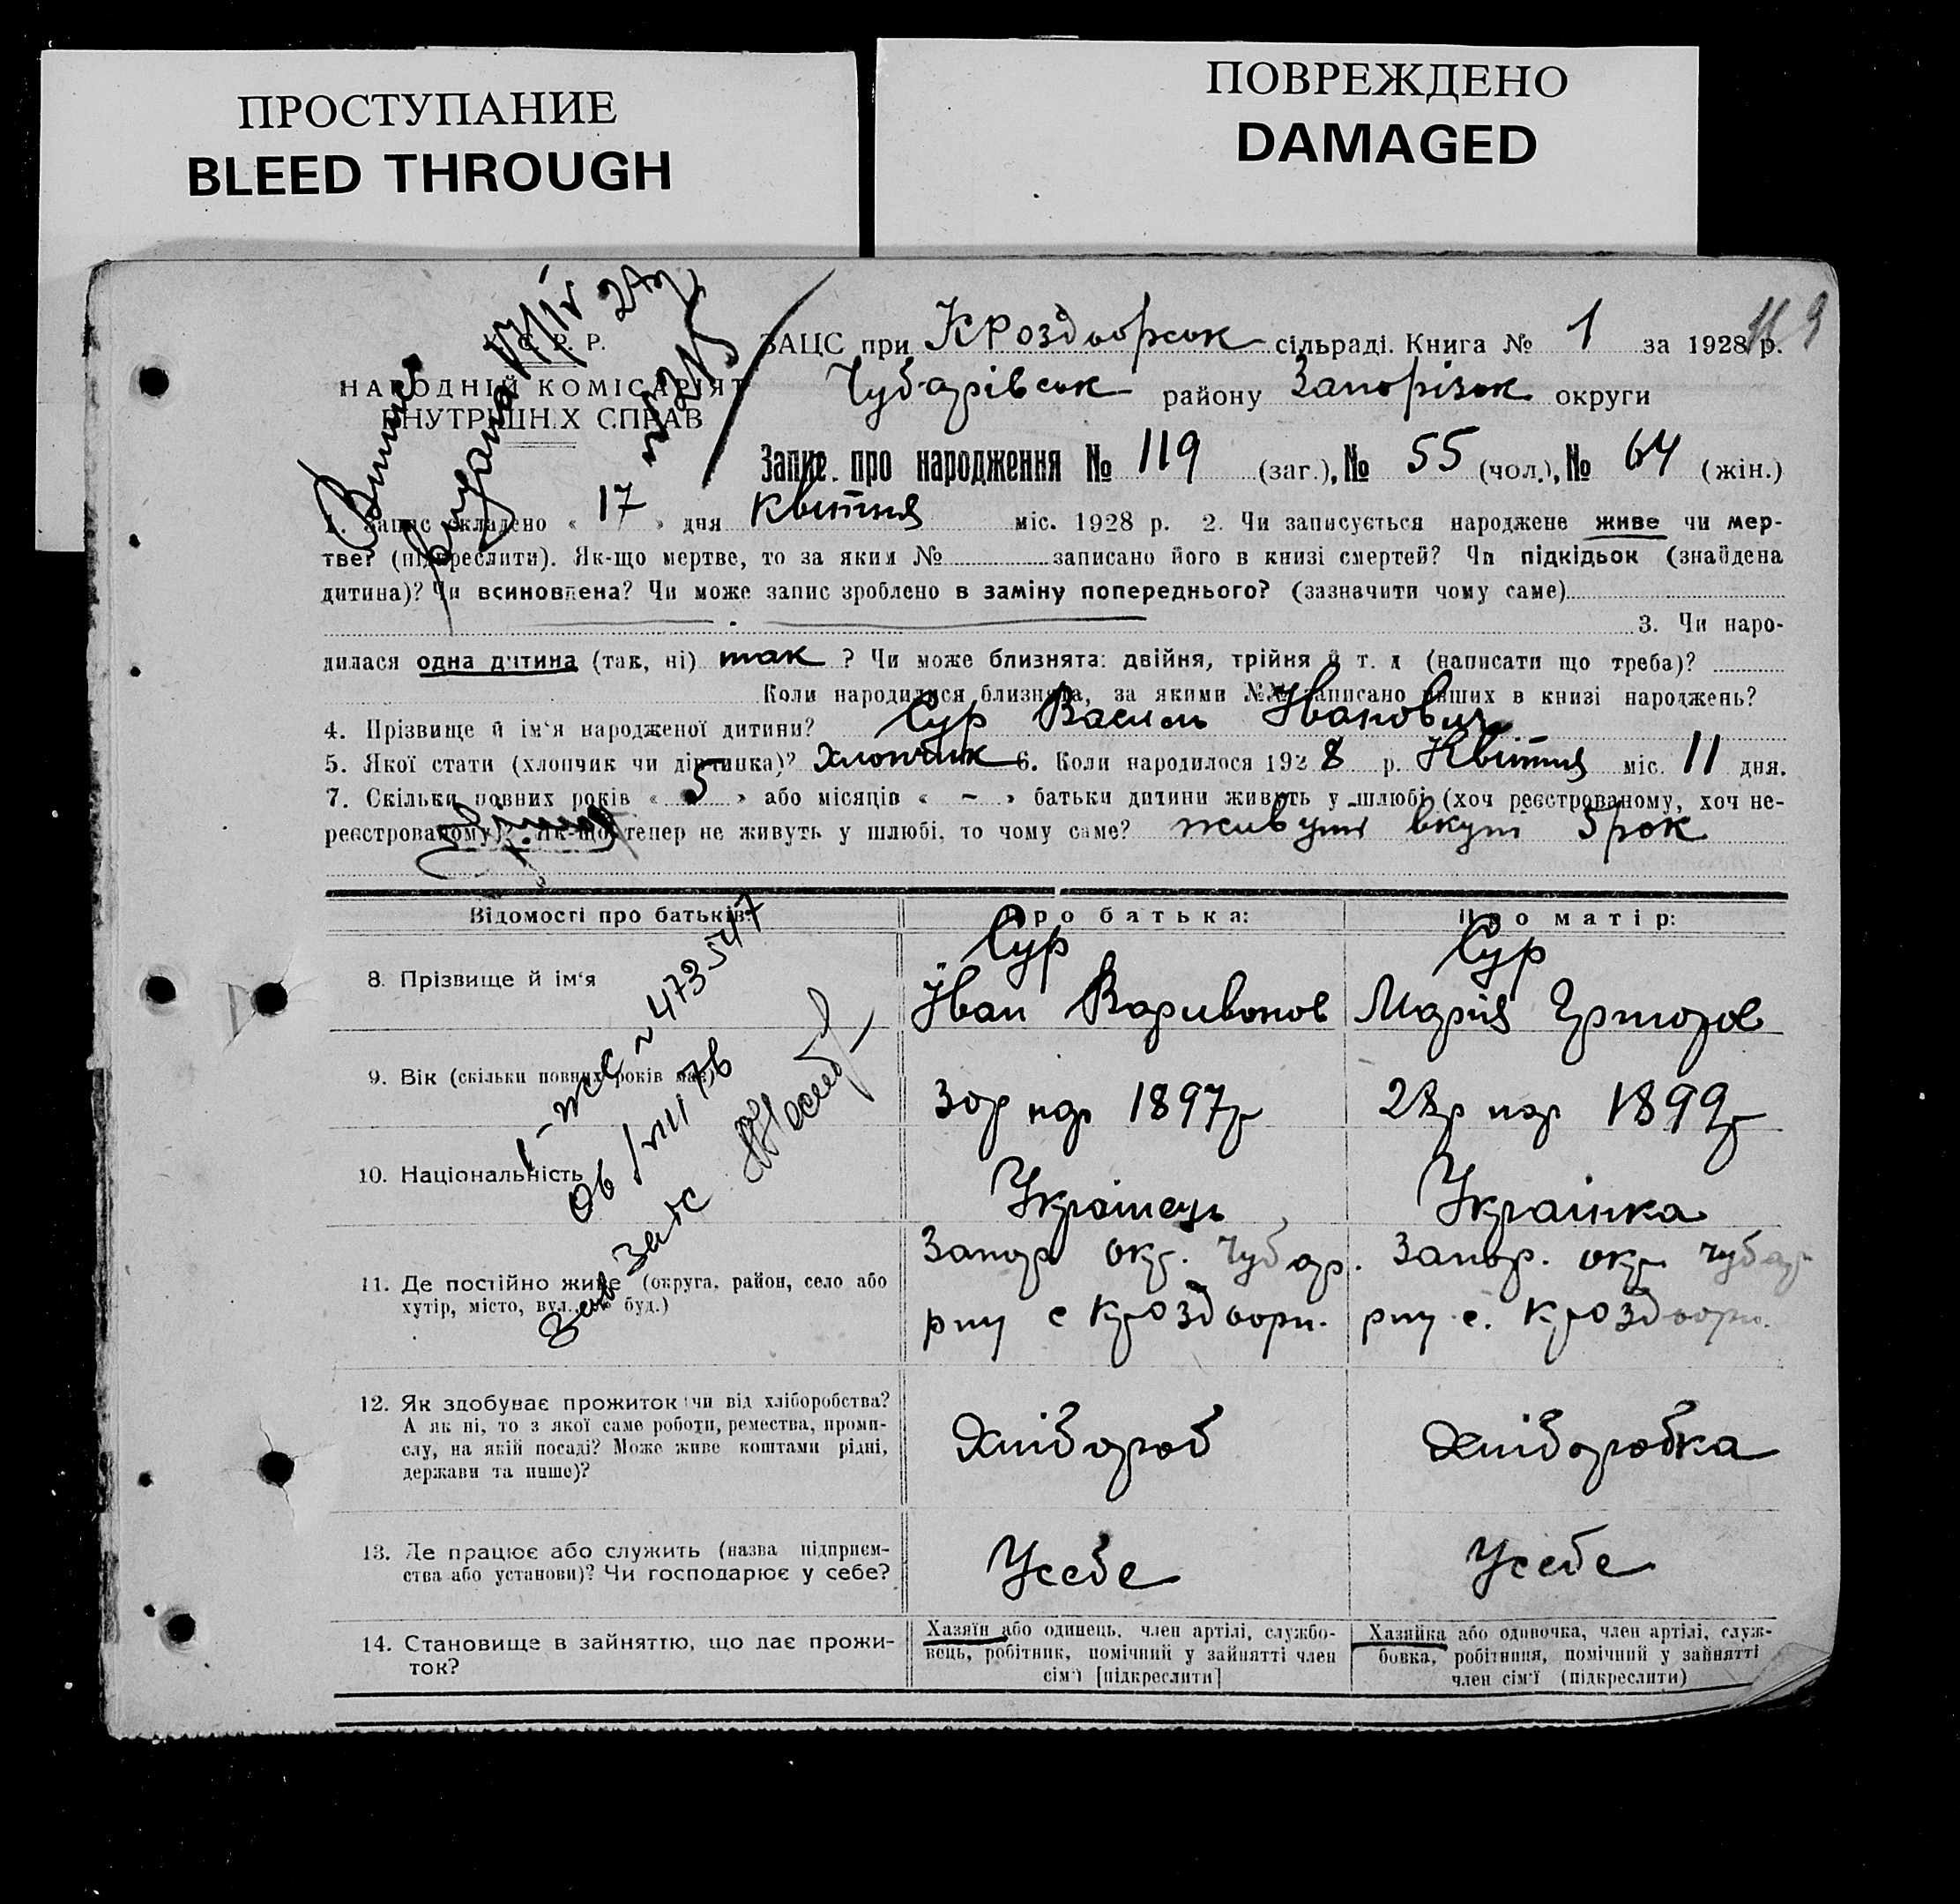 ПРОСТУПАНИЕ
BLEED THROUGH
ПОВРЕЖДЕНО
DAMAGED
119
У. С. Р. Р.
НАРОДНІЙ КОМІСАРІЯТ
ВНУТРІШНІХ СПРАВ
Випис
17/IV
ЗАЦС при Кроздоорськ сільраді. Книга № 1 за 1928 р.
Чубарівськ району Запорізьк округи
Запис про народження № 119 (заг.), № 55 (чол.), № 64 (жін.)
1. Запис складено « 17 » дня квітня міс. 1928 р. 2. Чи записується народжене живе чи мер-
тве? (підкреслити). Як-що мертве, то за яким № записано його в книзі смертей? Чи підкідьок (знайдена
дитина)? Чи всиновлена? Чи може запис зроблено в заміну попереднього? (зазначити чому саме)
3. Чи наро-
дилася одна дитина (так, ні) так ? Чи може близнята: двійня, трійня й т. д (написати що треба)?
Коли народилися близнята, за якими №№ записано инших в книзі народжень?
4. Прізвище й ім'я народженої дитини? Сур Василь Іванович
5. Якої стати (хлопчик чи дівчинка)? Хлопчик 6. Коли народилося 1928 р. Квітня міс. 11 дня.
7. Скільки повних років « 5 » або місяців « - » батьки дитини живуть у шлюбі (хоч реєстрованому, хоч не-
реєстрованому)? Як-що тепер не живуть у шлюбі, то чому саме? живуть вкупі 5 рок
Відомості про батьків: Про батька: Про матір:
8. Прізвище й ім'я Сур Іван Варивонов Сур Марія Григоров
1-ЖС № 473547
9. Вік (скільки повних років має) 30р нар 1897р 28р нар 1899р
06/VIII 76
10. Національність Українець Українка
Зав Загс
11. Де постійно живе (округа, район, село або Запор окр. Чубар. Запор. окр Чубар
хутір, місто, вул., № буд.) рну с Кроздоорн. рну с. Кроздоорн.
12. Як здобуває прожиток: чи від хліборобства? Хлібороб Хліборобка
А як ні, то з якої саме роботи, ремества, проми-
слу, на якій посаді? Може живе коштами рідні,
держави та инше)?
13. Де працює або служить (назва підприєм- Усебе Усебе
ства або установи)? Чи господарює у себе?
14. Становище в зайняттю, що дає прожи-
ток?
Хазяїн або одинець, член артілі, службо-
вець, робітник, помічний у зайнятті член
сім'ї [підкреслити]
Хазяйка або одиночка, член артілі, служ-
бовка, робітниця, помічний у зайнятті
член сім'ї (підкреслити)